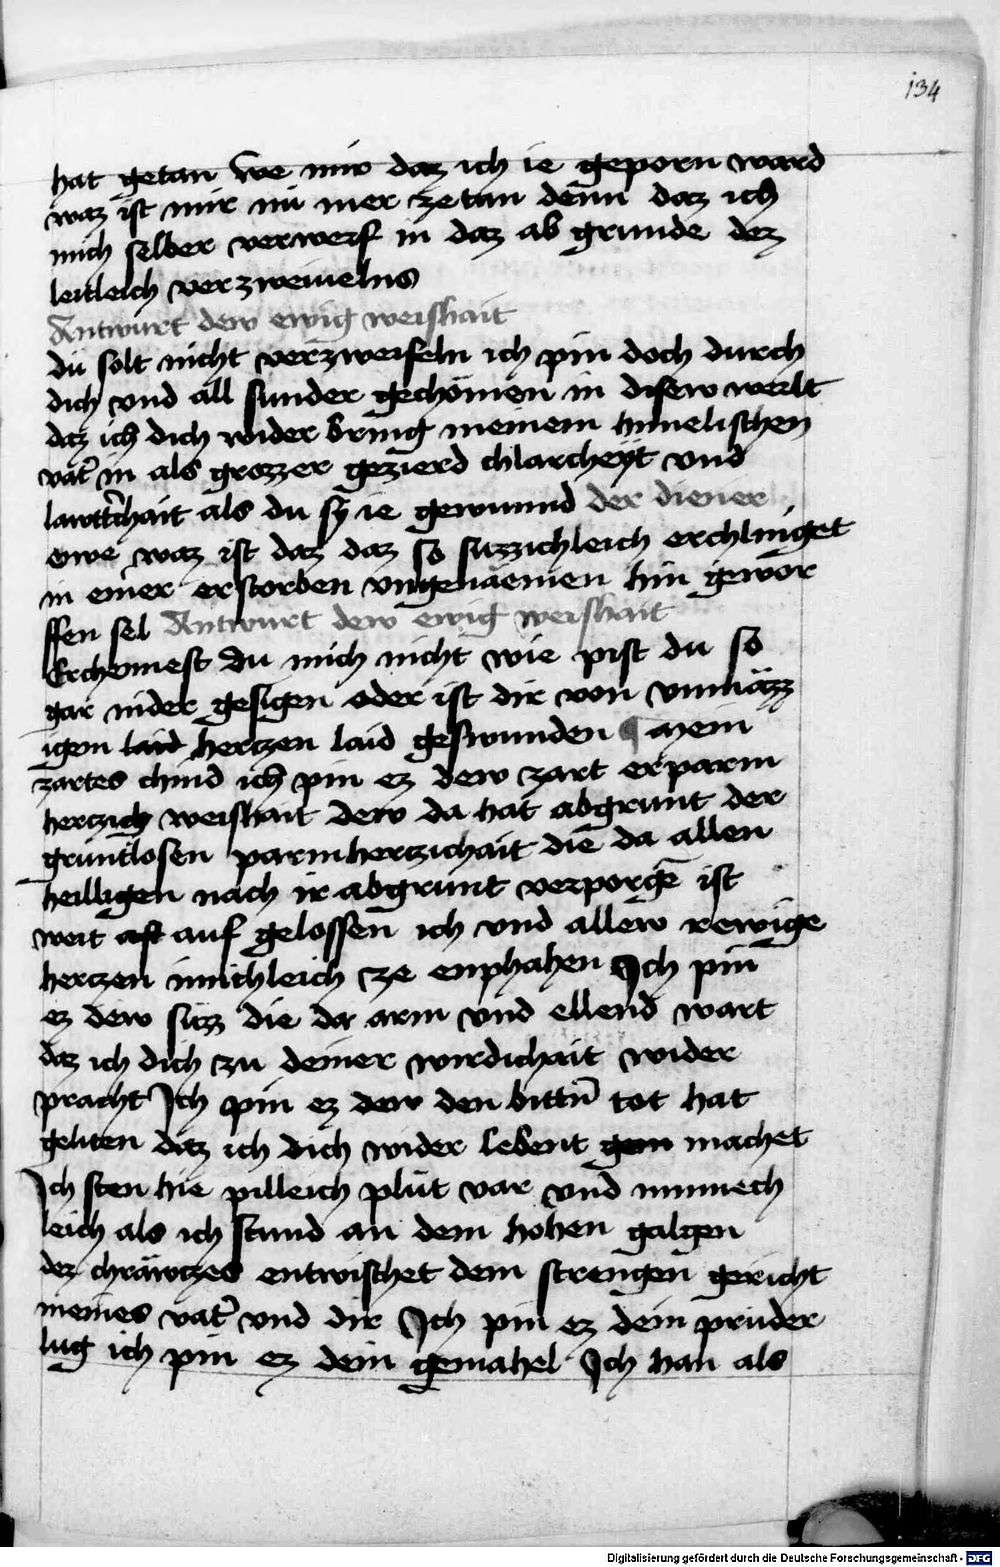 134
hat getan We mir daz ich ie geporn ward
waz ist mir nu mer ze tun denn daz ich
mich selber verwerf in daz ab grunde dez
leitleich verzweiuelns
Antwurt dew ewig weishait
du solt nicht verzweifeln ich pin doch durch
dich vnd all sunder gechömen in disew werlt
daz ich dich wider bring meinem himelischen
vater in als grozzer gezierd chlarcheÿt vnd
lawtterchait als du sy ie gewunnd der diener
owe waz ist daz daz so suzzichleich erchlinget
in einer erstorben vngenäemen hin gewor
ffen sel Antwurt dew ewig weishait
Erchennest du mich nicht wie pist du so
gar nider gesigen oder ist dir von vnmäzz
igem laid hertzen laid geswunden ¶ Mein
zartes chind ich pin ez dew zart erparm
hertzich weishait dew da hat abgrunt der
gruntlosen parmhertzichait die da allen
heilligen nach ir abgrunt verporgen ist
weit aft auf gelossen ich vnd allew rewige
hertzen mitichleich ze enphahen Ich pin
ez dew suzz die da arm vnd ellend wart
daz ich dich zu deiner wirdichait wider
pracht Ich pin ez dew den bittern tot hat
geliten daz ich dich wider lebent machet
Ich sten hie pilleich plut var vnd minnech
leich als ich stund an dem hohen galgen
dez chräwtzes entwischet dem strengen gericht
meines vater vnd dir Ich pin ez dein pruder
lug ich pin ez dein gemahel Ich han als
Digitalisierung gefördert durch die Deutsche Forschungsgemeinschaft - DFG